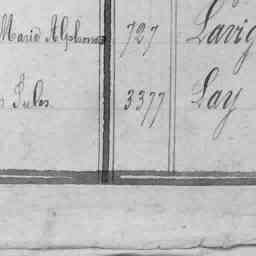 Marie Alphonse 727 Lavig
s Jules 3377 Lay